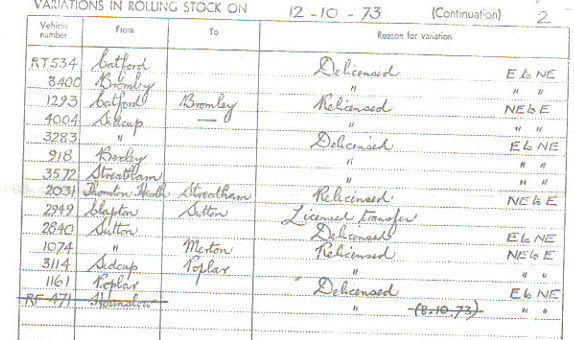 VARIATIONS IN ROLLING STOCK ON 12-10-73 (Continuation) 2
Vehicle number From To Reason for variation
RT534 Catford Delicensed E to NE
3400 Bromley " " "
1293 Catford Bromley Relicensed NE to E
4004 Sidcup — " " "
3283 " Delicensed E to NE
918 Bexley " " "
3572 Streatham " " "
2031 Thornton Heath Streatham Relicensed NE to E
2949 Clapton Sutton Licensed transfer
2840 Sutton Delicensed E to NE
1074 " Merton Relicensed NE to E
3114 Sidcup Poplar " " "
1161 Poplar Delicensed E to NE
RF 471 Hounslow " (8.10.73) " "